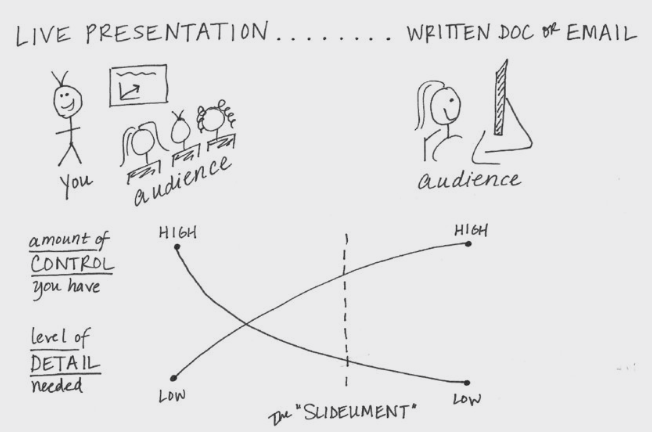 LIVE PRESENTATION........ WRITTEN DOC OR EMAIL
you
audience
audience
amount of
CONTROL
you have
level of
DETAIL
needed
HIGH
HIGH
LOW
LOW
The "SLIDEUMENT"